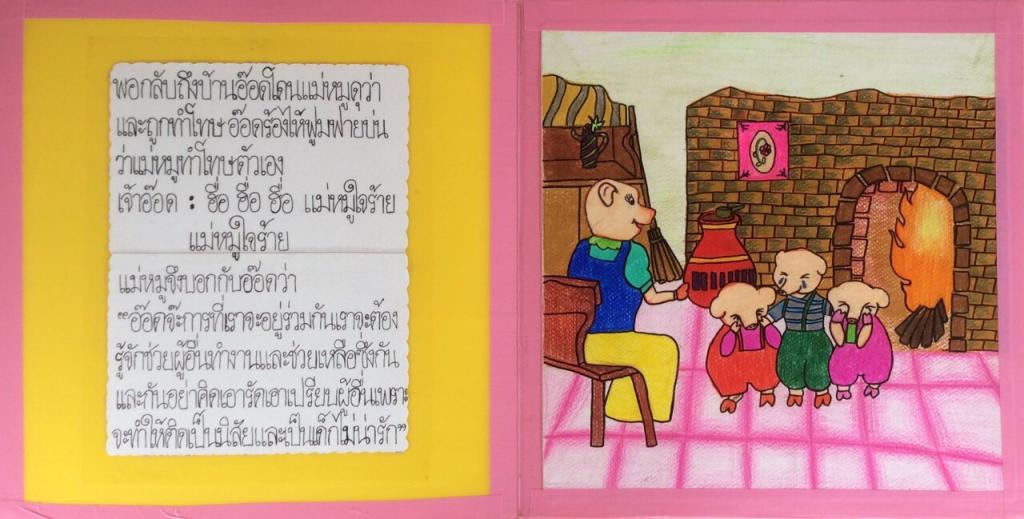 พอกลับถึงบ้านอ๊อดโดนแม่หมูดุว่า
และถูกทำโทษ อ๊อดร้องไห้ฟูมฟายบ่น
ว่าแม่หมูทำโทษตัวเอง
เจ้าอ๊อด : ฮื่อ ฮื่อ ฮื่อ แม่หมูใจร้าย
แม่หมูใจร้าย
แม่หมูจึงบอกกับอ๊อดว่า
"อ๊อดจ๊ะการที่เราจะอยู่ร่วมกันเราจะต้อง
รู้จักช่วยผู้อื่นทำงานและช่วยเหลือซึ่งกัน
และกันอย่าคิดเอารัดเอาเปรียบผู้อื่นเพราะ
จะทำให้ติดเป็นนิสัยและเป็นเด็กไม่น่ารัก"